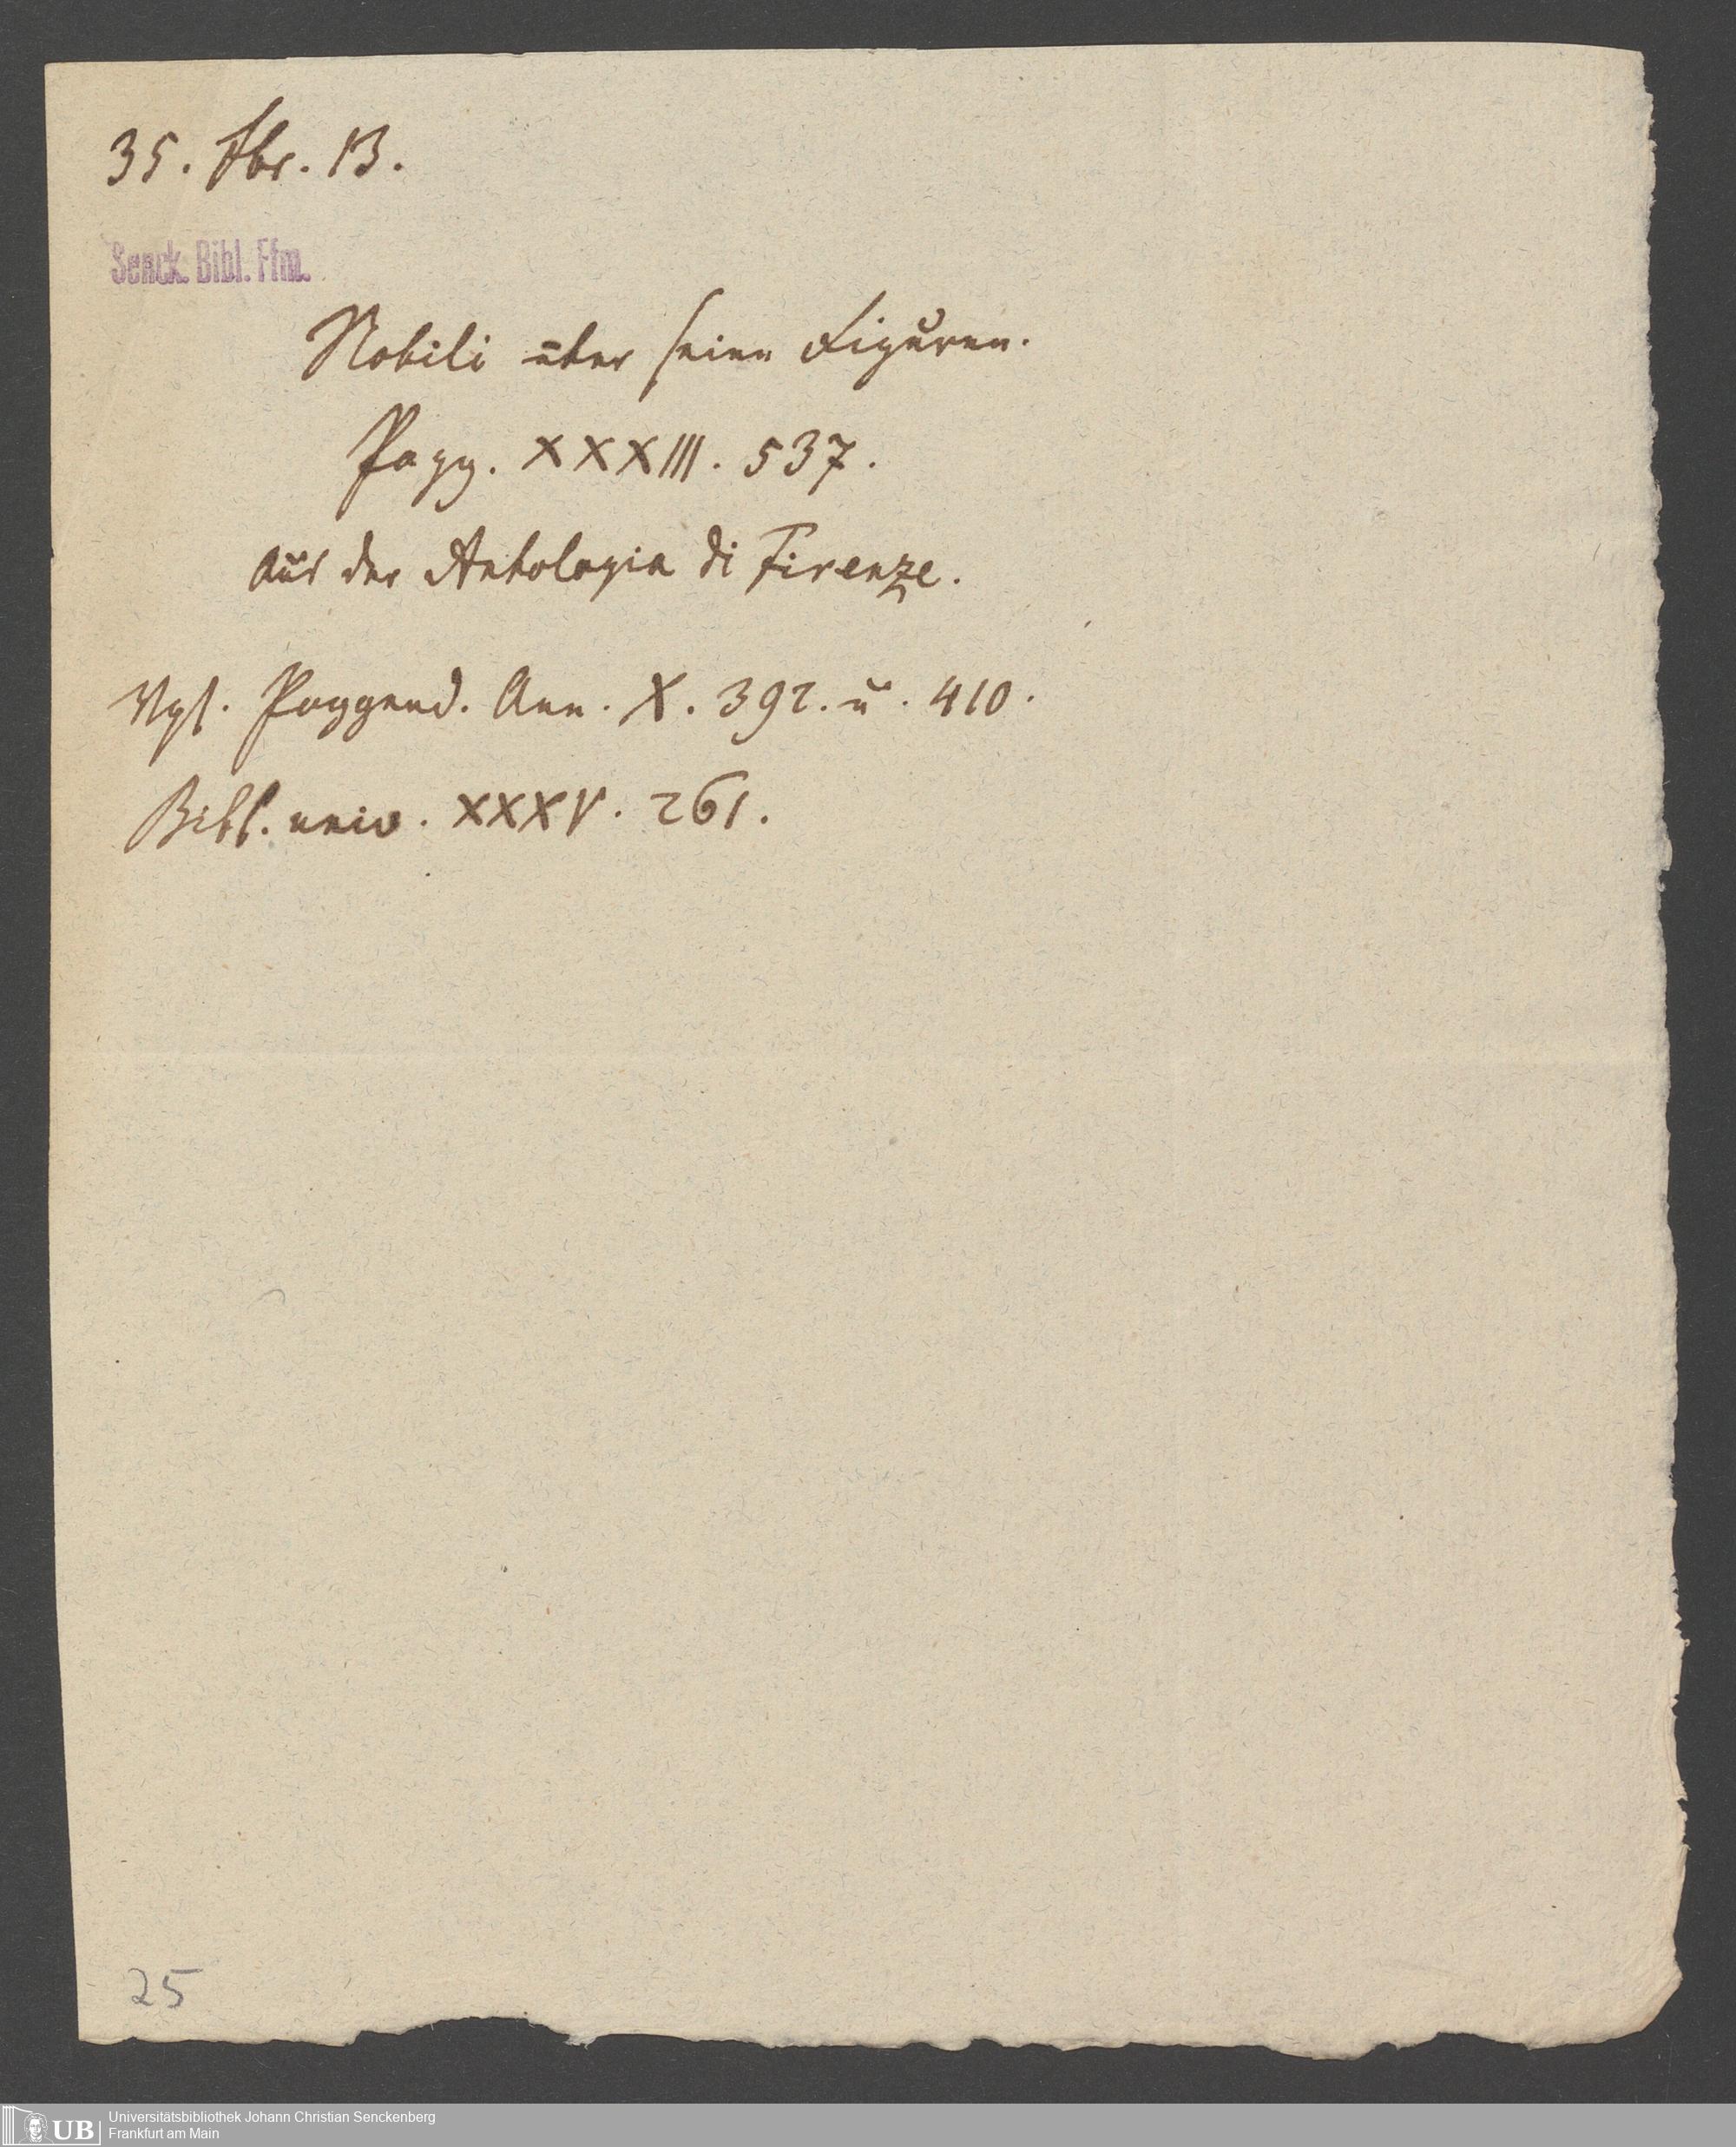 35. Fbr. 13.
Senck. Bibl. Ffm.
Nobili über seine Figuren.
Pogg. XXXIII. 537.
Aus der Antologia di Firenze.
Vgl. Poggend. Ann. X. 392. u. 410.
Bibl. univ. XXXV. 261.
25
UB
Universitätsbibliothek Johann Christian Senckenberg
Frankfurt am Main